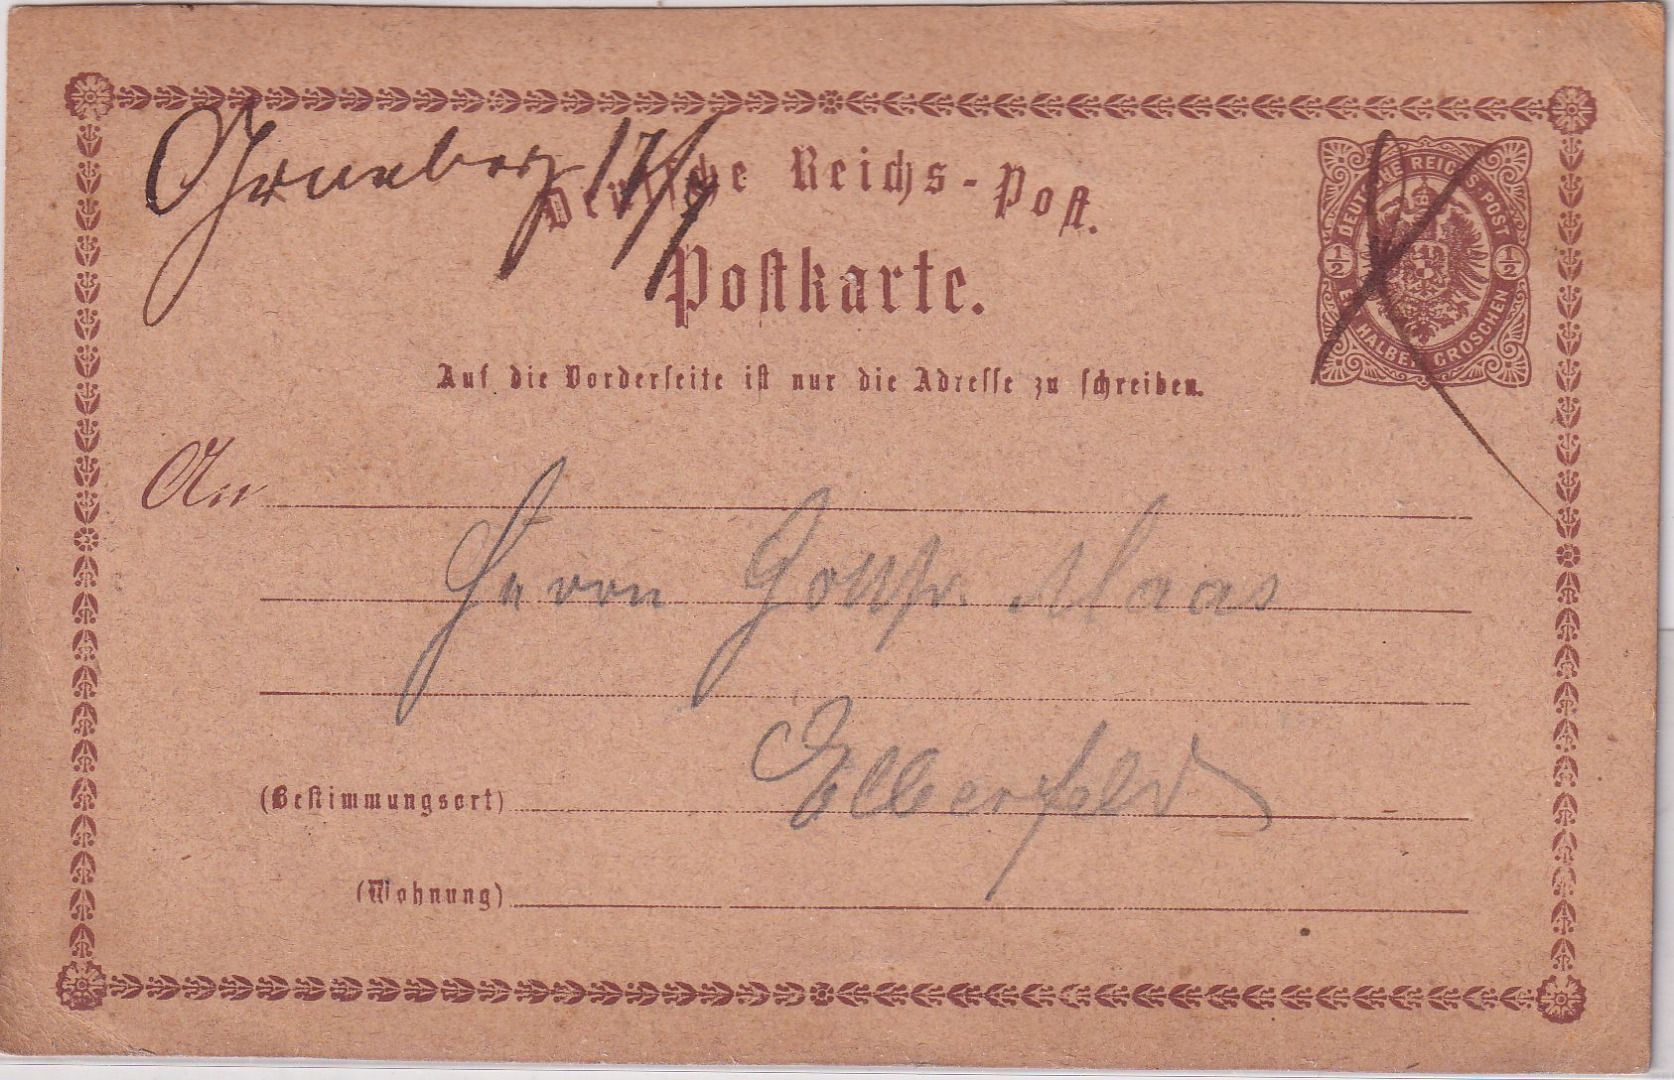 Grneberg 17/7
Deutsche Reichs-Post.
Postkarte.
DEUTSCHE REICHS-POST
1/2 1/2
HALBER GROSCHEN
Auf die Vorderseite ist nur die Adresse zu schreiben.
An
Herrn Gottfr. Maas
Elberfeld
(Bestimmungsort)
(Wohnung)